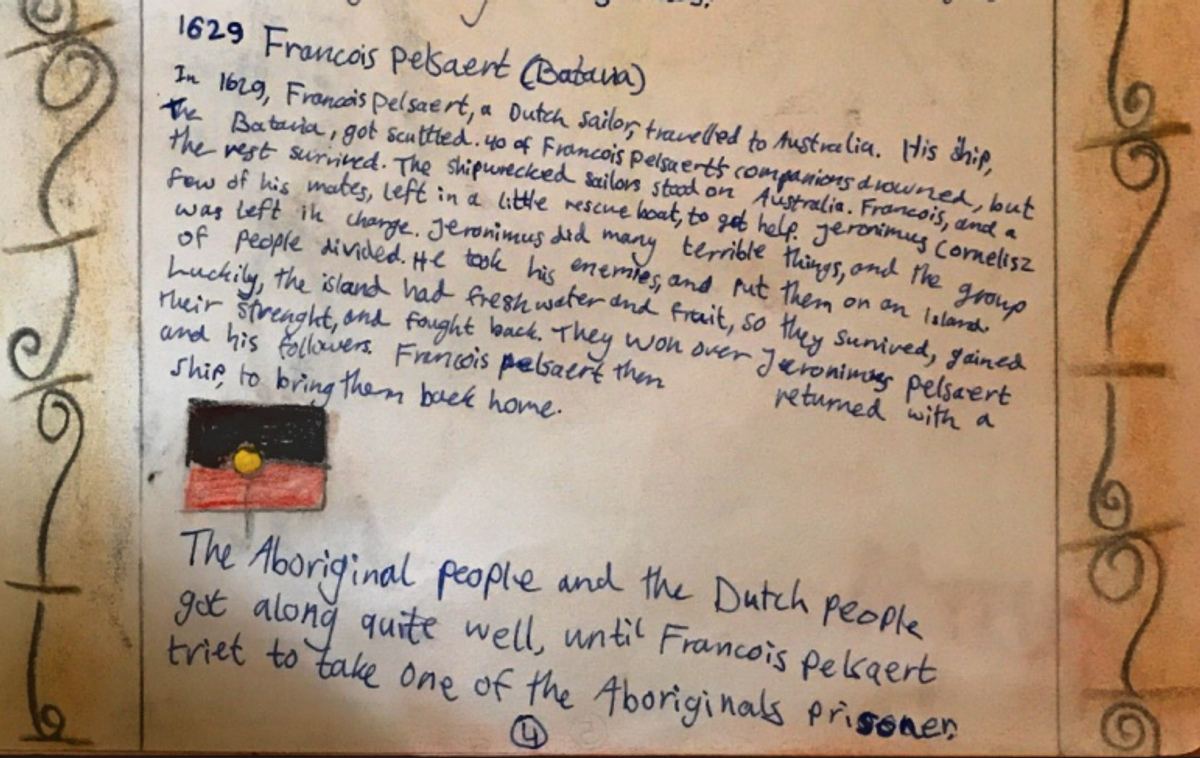 1629 Francois Pelsaert (Batavia)
In 1629, Francois Pelsaert, a Dutch sailor, travelled to Australia. His ship,
the Batavia, got scuttled. 40 of Francois Pelsaert's companions drowned, but
the rest survived. The shipwrecked sailors stood on Australia. Francois, and a
few of his mates, left in a little rescue boat, to get help. Jeronimus Cornelisz
was left in charge. Jeronimus did many terrible things, and the group
of people divided. He took his enemies, and put them on an Island.
Luckily, the island had fresh water and fruit, so they survived, gained
their strenght, and fought back. They won over Jeronimus pelsaert
and his followers. Francois pelsaert then returned with a
ship, to bring them back home.
The Aboriginal people and the Dutch people
got along quite well, until Francois pelsaert
triet to take one of the Aboriginals prisoner.
4